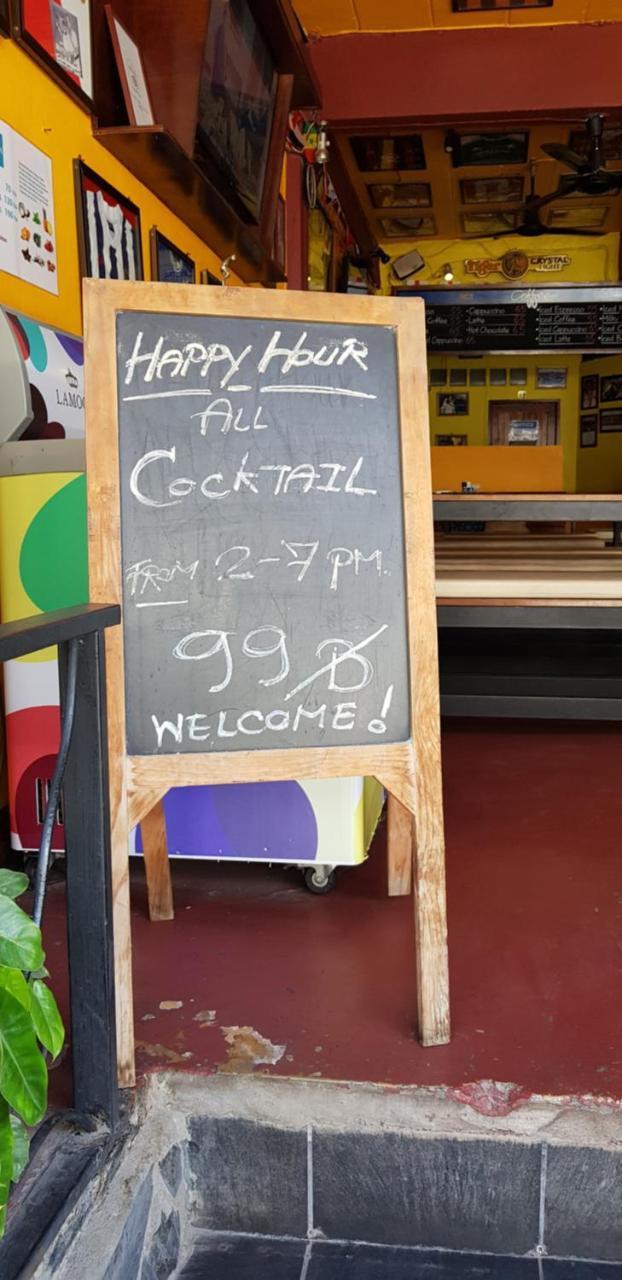 HAPPY HOUR
ALL
COCKTAIL
FROM 2-7 PM.
99 ฿
WELCOME!
LAMO
Tiger CRYSTAL
LIGHT
Coffee
Cappuccino
Latte
Hot Chocolate
Iced Espresso
Iced Coffee
Iced Cappuccino
Iced Latte